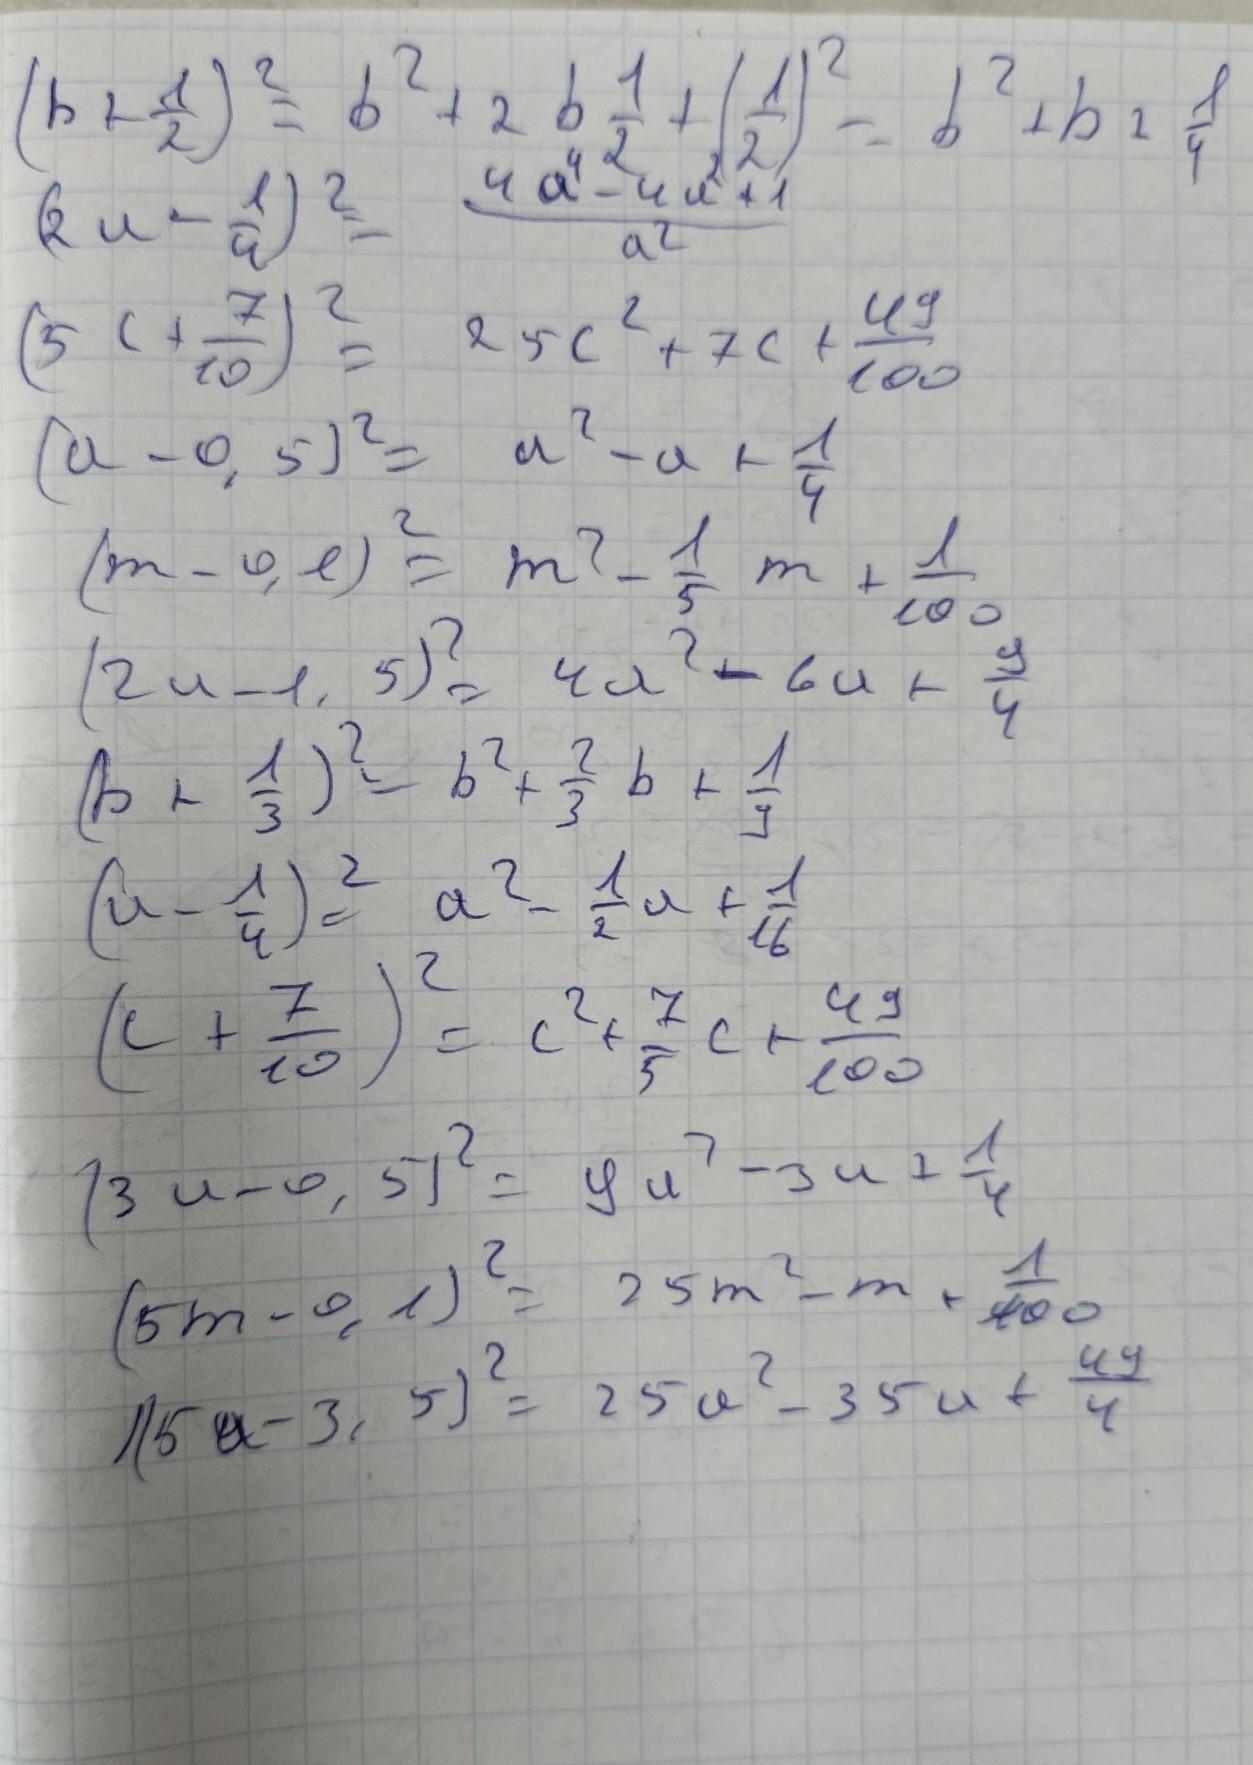 (b + 1/2)² = b² + 2 b 1/2 + (1/2)² = b² + b + 1/4
(2a - 1/4)² = (4a⁴ - 4a² + 1)/a²
(5c + 7/10)² = 25c² + 7c + 49/100
(a - 0,5)² = a² - a + 1/4
(m - 0,1)² = m² - 1/5 m + 1/100
(2a - 1,5)² = 4a² - 6a + 9/4
(b + 1/3)² = b² + 2/3 b + 1/9
(a - 1/4)² = a² - 1/2 a + 1/16
(c + 7/10)² = c² + 7/5 c + 49/100
(3a - 0,5)² = 9a² - 3a + 1/4
(5m - 0,1)² = 25m² - m + 1/100
(5a - 3,5)² = 25a² - 35a + 49/4